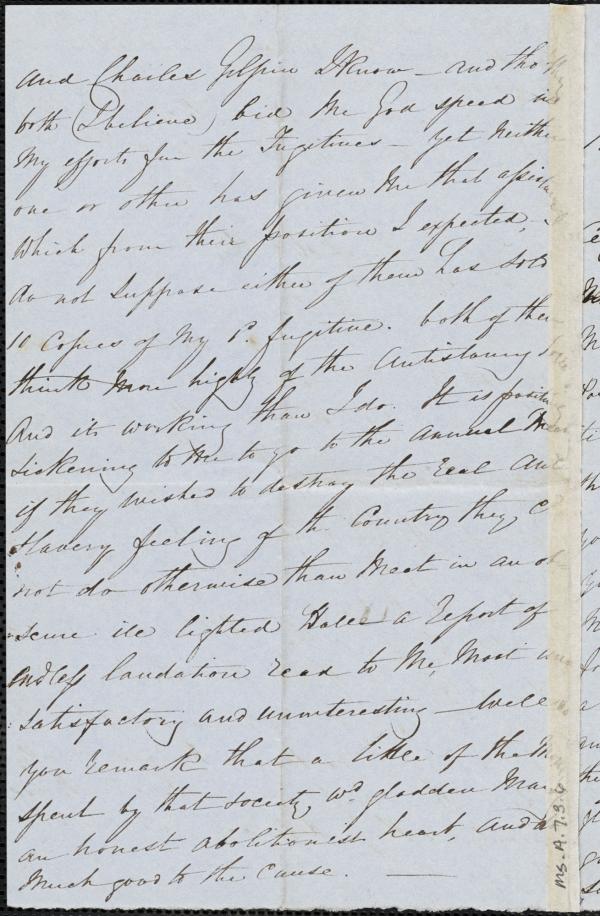 and Charles Gilpin I know – and tho
both (I believe) bid me God speed in
my efforts for the Fugitives – yet neither
one or other has given me that assist
which from their position I expected,
do not suppose either of them has sold
10 Copies of my P. fugitive. both of the
think more highly of the Antislavery So
And its working than I do. It is positi
sickening to me to go to the annual Mee
if they wished to destroy the real Anti
slavery feeling of th Country they C
not do otherwise than meet in an ob
scure ill lighted Hall a report of
endless laudation read to me, Most un
satisfactory and uninteresting – Well
you remark that a little of the M
spent by that society wd gladden Man
an honest abolitionist heart, and d
Much good to the Cause. —
Ms. A. 7. 3. 6